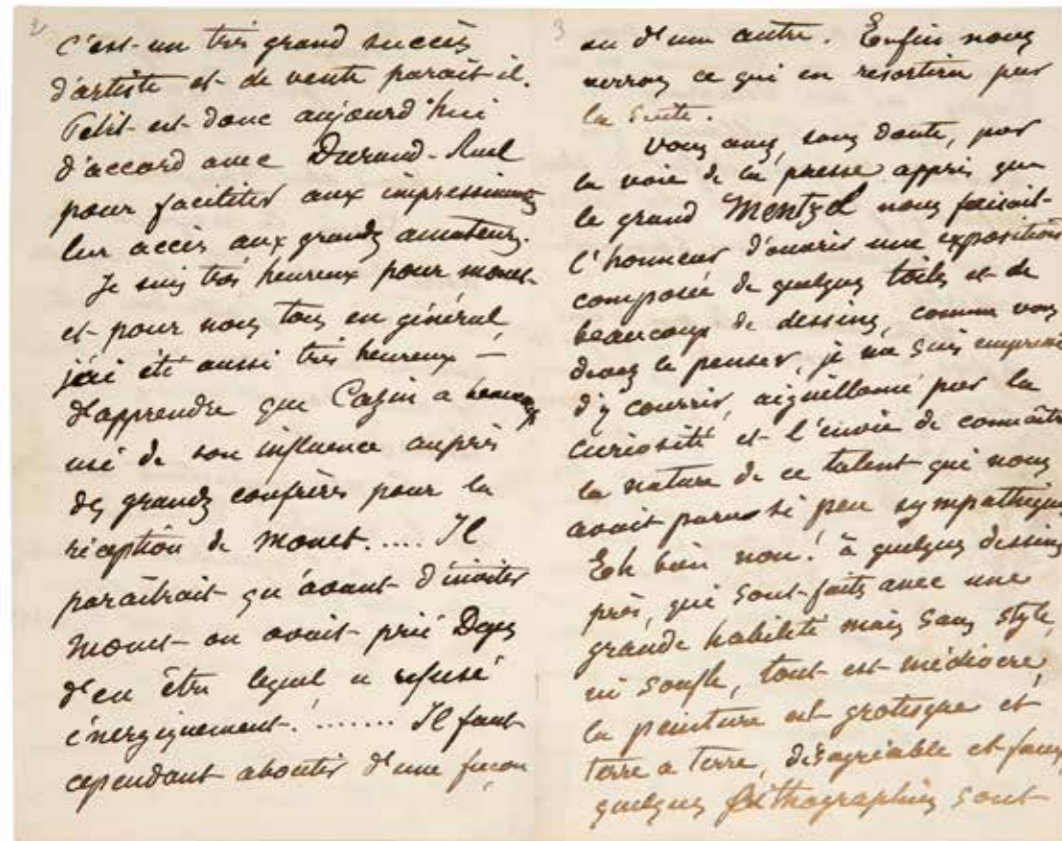 2
C'est un très grand succès
d'artiste et de vente parait-il.
Petit est donc aujourd'hui
d'accord avec Durand-Ruel
pour faciliter aux impressionnistes
leur accès aux grands amateurs.
Je suis très heureux pour Monet
et pour nous tous en général,
j'ai été aussi très heureux —
d'apprendre que Cazin a beaucoup
usé de son influence auprès
des grands confrères pour la
réception de Monet..... Il
paraîtrait qu'avant d'inviter
Monet on avait prié Degas
d'en être lequel a refusé
énergiquement.!....... Il faut
cependant aboutir d'une façon
3
ou d'une autre. Enfin nous
verrons ce qui en resortira par
la suite.
Vous avez, sans doute, par
la voie de la presse appris que
le grand Mentzel nous faisait
l'honneur d'ouvrir une exposition
composée de quelques toiles et de
beaucoup de dessins, comme vous
devez le penser, je me suis empressé
d'y courrir, aiguillonné par la
curiosité et l'envie de connaître
la nature de ce talent qui nous
avait paru si peu sympathique
Eh bien non! à quelques dessins
près, qui sont faits avec une
grande habileté mais sans style,
ni soufle, tout est médiocre,
la peinture est grotesque et
terre a terre, désagréable et fausse,
quelques lithographies sont